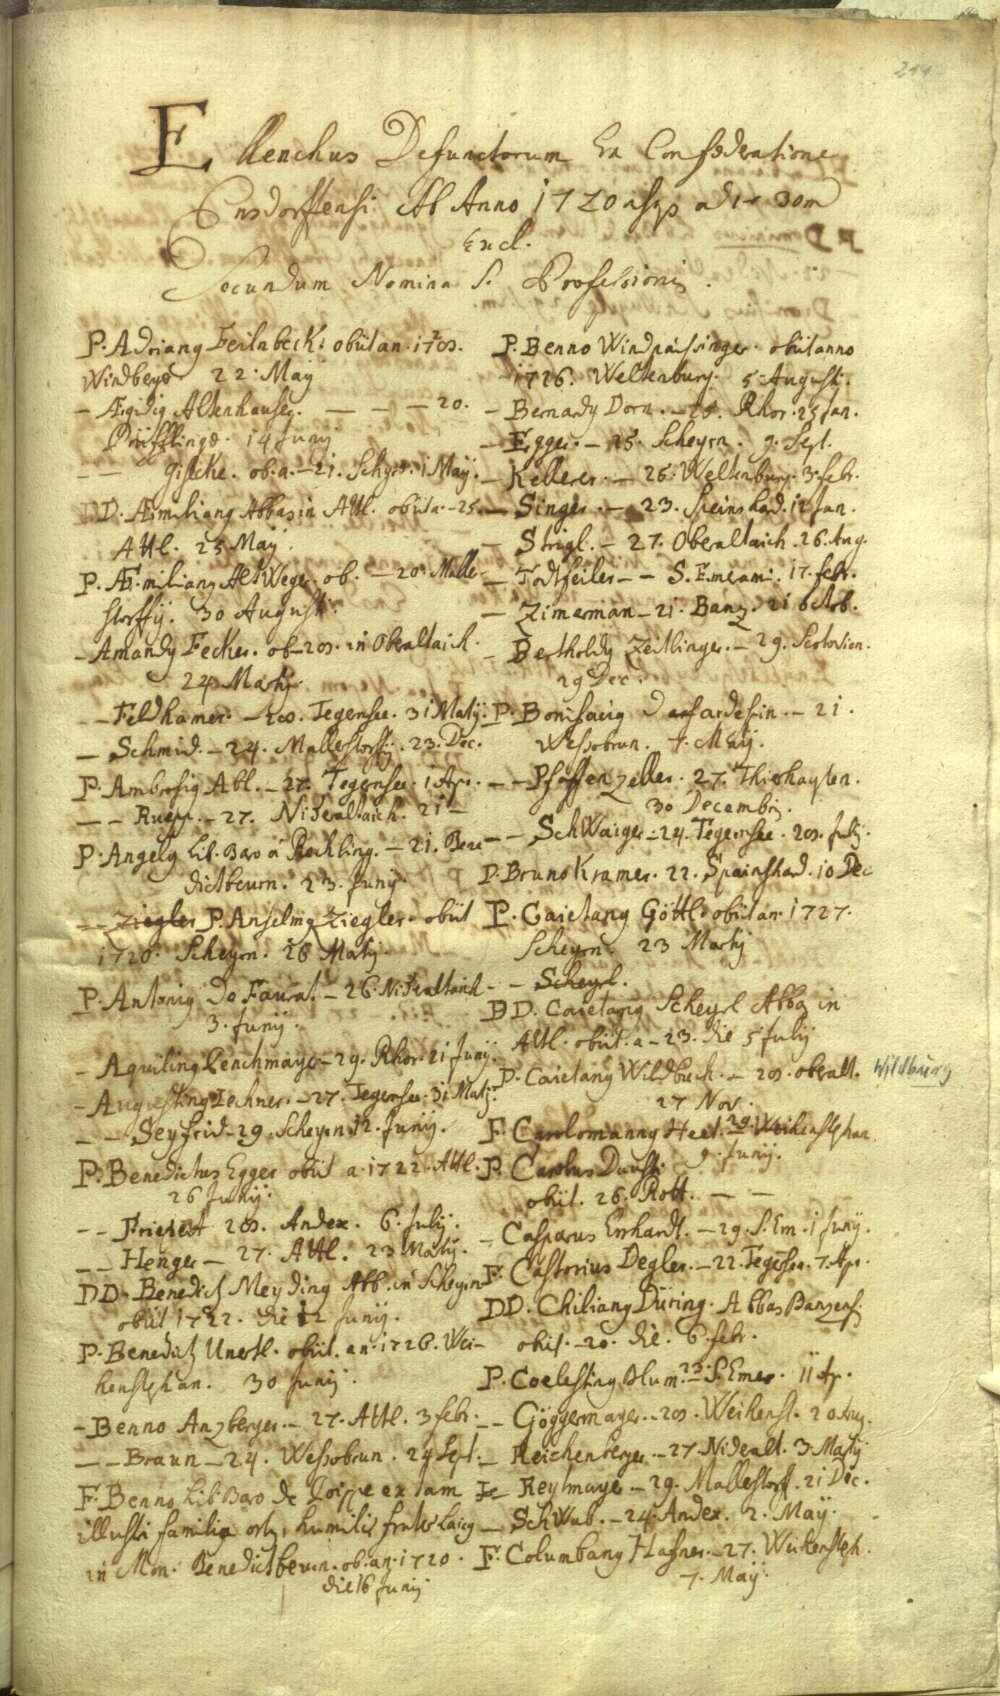 244
Ellenchus Defunctorum Ex Confœderatione
Ensdorffensi Ab Anno 1720 usqs ad 1730m
Excl.
Secundum Nomina S. Professionis.
P. Adrianq Feilnbeck. obiit an. 1720s.
Windberge 22. Maÿ
- Ægidiq Altenhauser. — — — 20.
Prüfflinge. 14 Junÿ
— — Gilcke. ob. a. — 21. Schyrn. 1 Maÿ.
DD. Æmilianq Abbas in Attl. obiit a. — 25.
Attl. 25 Maÿ.
P. Æmilianq Altweger. ob. — 20. Malle-
storffÿ. 30 August.
- Amandq Fecker. ob. 20s. in Oberaltaich.
24 Martÿ.
- - Feldhamer. — 20s. Tegernsee. 31 Martÿ.
— Schmid. — 24. Mallerstorffÿ. 23. Dec.
P. Ambrosiq Abl. — 27. Tegernsee. 1 Apr.
— — Ruepp. — 27. Nideraltaich. 21 —
P. Angelq Lib. Baro à Rechling. — 21. Bene
dictbeurn. 23. Junÿ.
— — Ziegler P. Anselmq Ziegler. obiit
1720. Scheyrn. 26 Martÿ.
P. Antoniq De Faurat. — 26. Nideraltaich
3. Junÿ.
- Aquilinq Lenchmayr — 29. Rhor. 21 Junÿ.
- Augustinq Lechner. — 27. Tegernsee. 31 Martÿ.
— — Seyfrid — 29. Scheyrn. 12. Junÿ.
P. Benedictus Egger obiit a. 1722. Attl.
26 Junÿ.
— — Friesect 20s. Andex. 6. Julÿ.
— — Henger — 27. Attl. 23 Martÿ.
DD. Benedictq Meyding Abb. in Scheyrn
obiit 1722. die 12 Junÿ.
P. Benedictq Unertl. obiit. an. 1726. Wei-
henstephan. 30 Junÿ.
- Benno Anzberger. — 27. Attl. 3 febr.
— — Braun — 24. Wessobrun. 24 Sept.
F. Benno Lib. Baro de ex tam
illustri familia ortq, humilis frater laicq
in Mon. Benedictbeurn. ob. an. 1720.
die 16 Junÿ
P. Benno Windpaissinger. obiit anno
1726. Weltenburg. 5. Augusti.
- Bernardq Dorn. — 28. Rhor. 25 Jan.
— Egger. — 25. Scheyrn. 9. Sept.
— Kellerer. — 26. Weltenburg. 3. febr.
— Singer. — 23. Speinshad. 12 Jan.
— Strigl. — 27. Oberaltaich. 26. Aug.
— Todtfeiler — — S. Emerami. 17. febr.
— Zimerman — 21. Banz. 21 octob.
— Bertholdq Zeitlinger. — 29.
29 Dec.
P. Bonifaciq — 21.
Wessobrun. 7. Maÿ.
— — Pfaffenzeller. 27. Thierhaupten.
30 Decembris.
— — Schwaiger — 24. Tegernsee. 20s. Julÿ.
P. Bruno Kramer. 22. Spainshard. 10 Dec
P. Caietanq Göttl. obiit an. 1727.
Scheyrn 23 Martÿ
— — Scheyrl.
DD. Caietanq Scheyrl Abbas in
Attl. obiit. a. — 23. die 5 Julÿ
P. Caietanq Wildbuch. — 20s. oberalt. Wildburg
27 Nov.
F. Carolomannq Heel. 29. Weihenstephan
9. Junÿ.
P. Carolus Dunst.
obiit. 26. Rott. — —
— Casparus Erhardt. — 29. S. Em. 1 Junÿ.
F. Castorius Degler. — 22. Tegernsee. 7. Apr.
DD. Chilianq Düring. Abbas Banzens.
obiit. — 20. die. 6. febr.
P. Coelestinq Blum. 23. S. Emer. 11 Ap.
— — Göggermayer. — 20s. Weihenst. 20 Aug.
— Reichenberger. — 27. Nideralt. 3. Martÿ
— Reytmayr — 29. Mallerstorff. 21 Dec.
— Schwab. — 24. Andex. 2. Maÿ.
F. Columbanq Hafner. — 27. Weihensteph.
7. Maÿ.